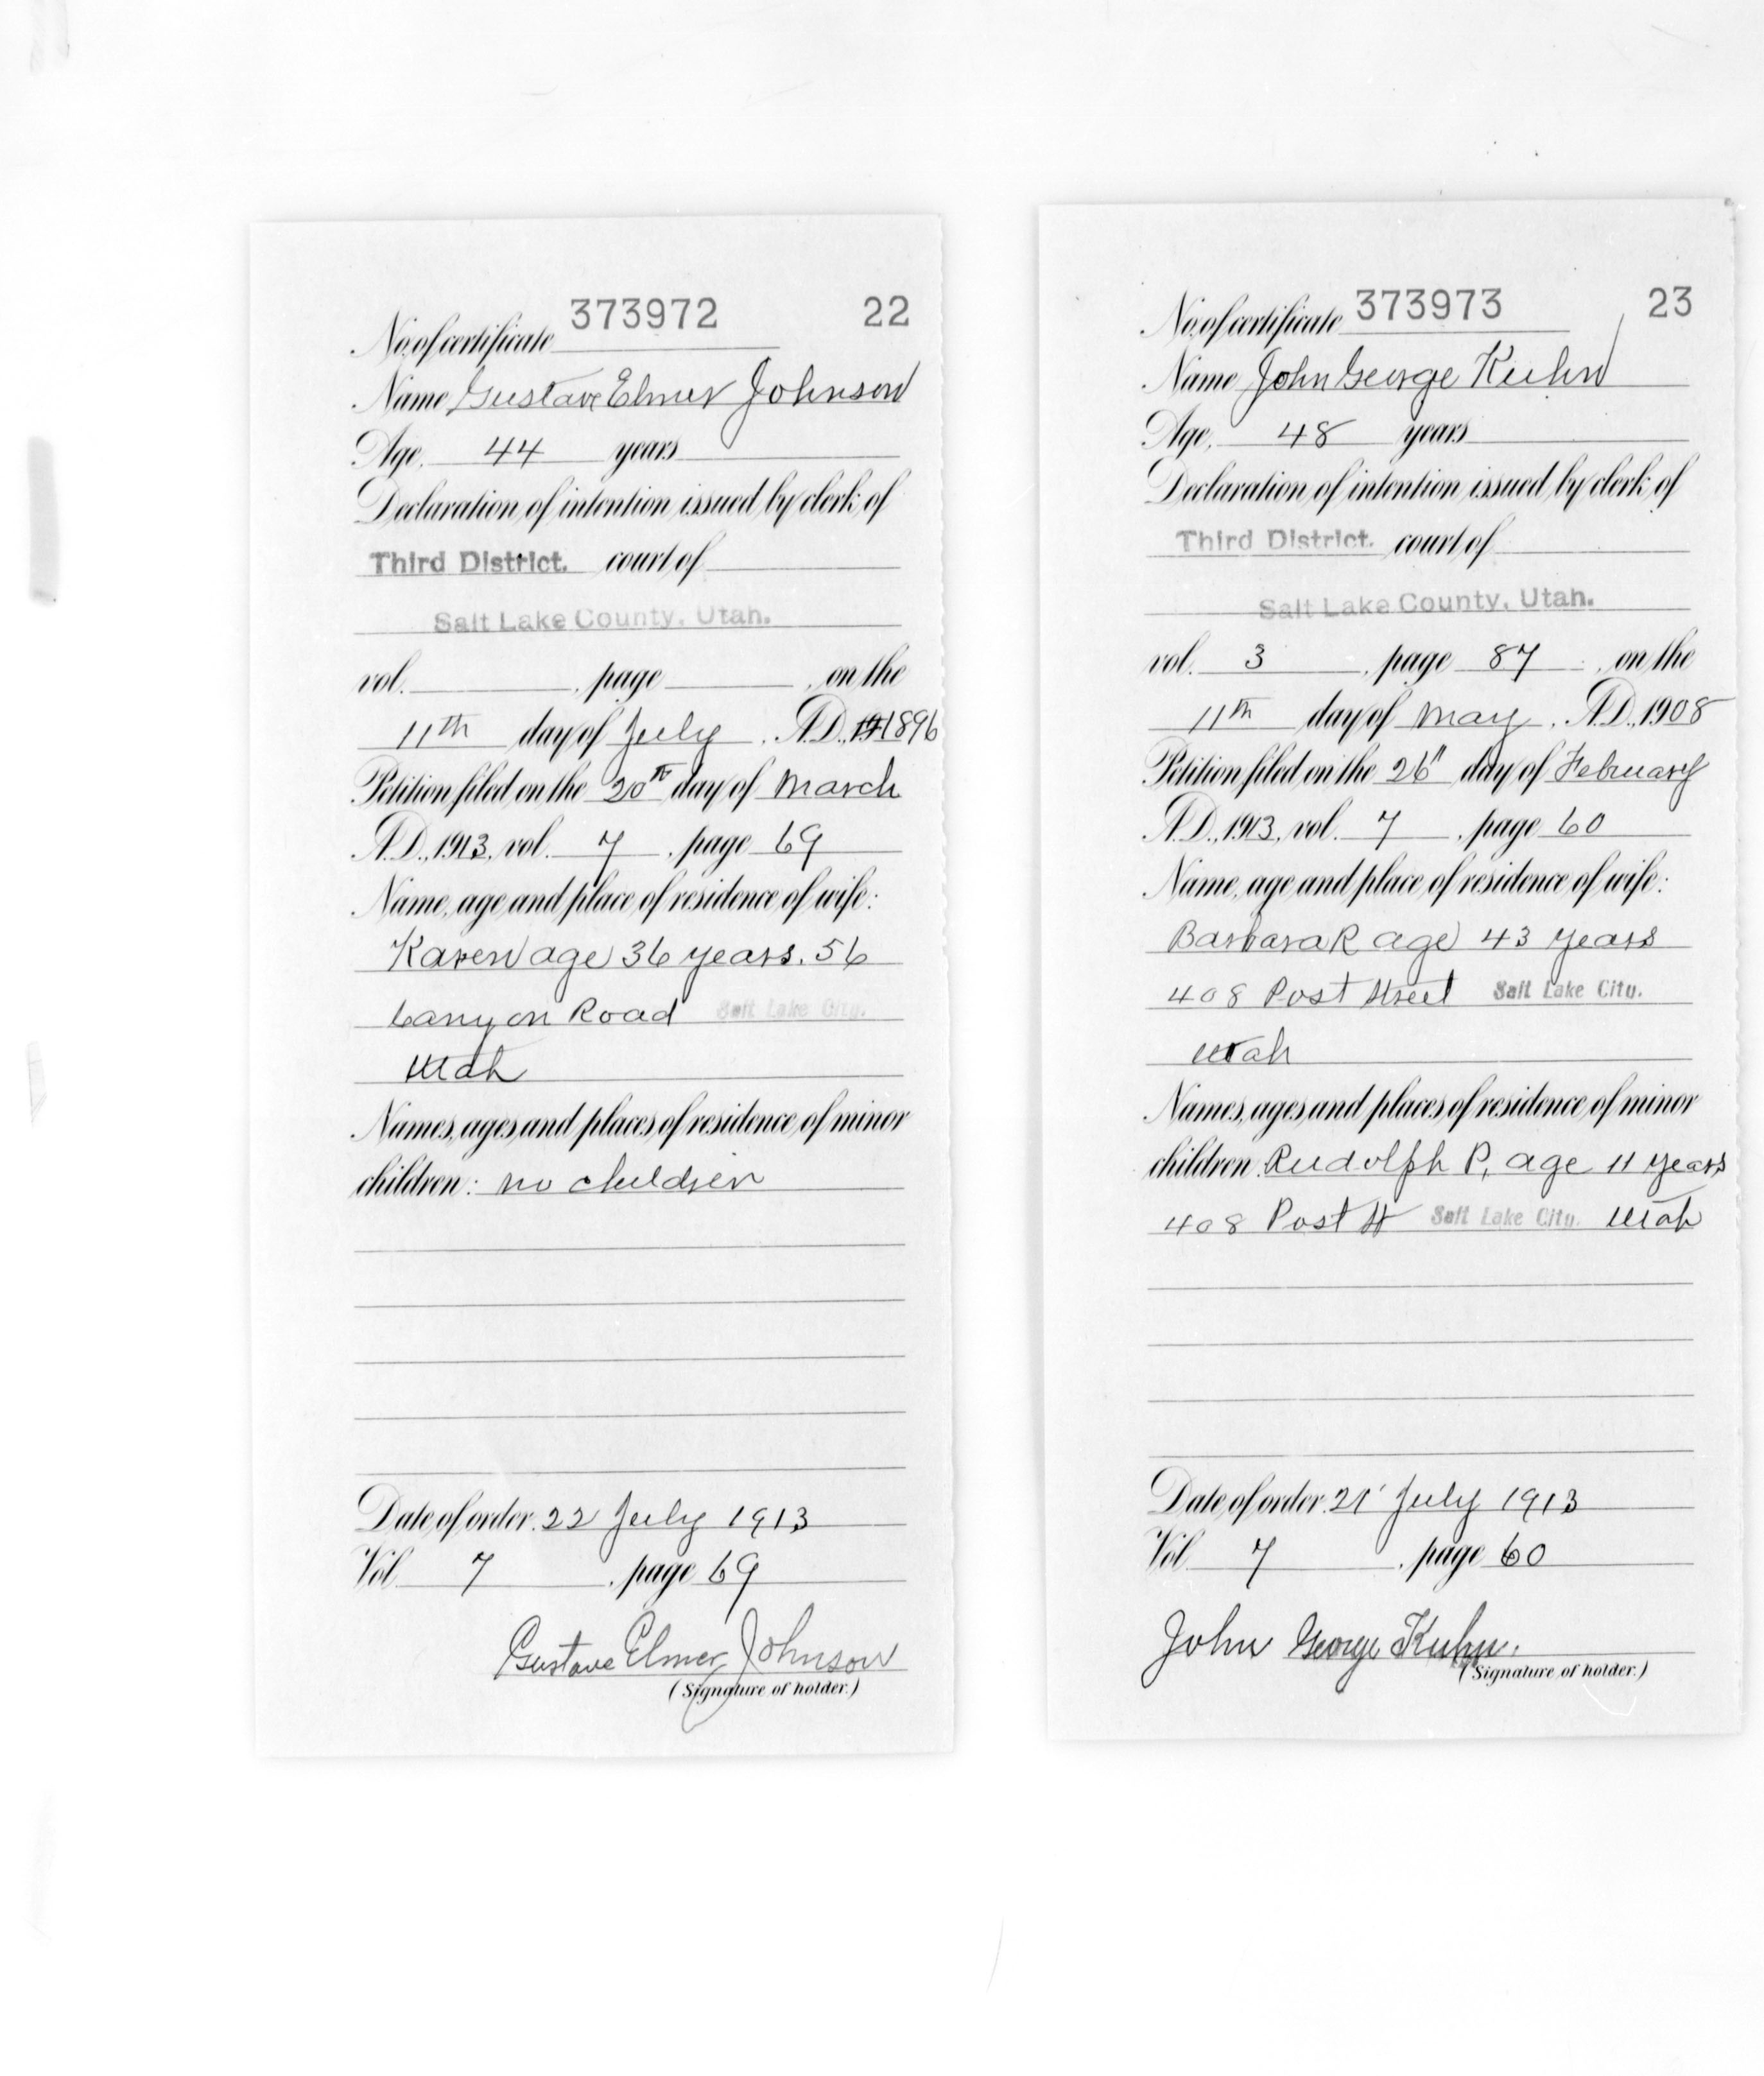 No. of certificate 373972 22
Name Gustave Elmer Johnson
Age, 44 years
Declaration of intention issued by clerk of
Third District. court of
Salt Lake County, Utah.
vol. , page , on the
11th day of July , A.D., 1896
Petition filed on the 20th day of March
A.D., 1913, vol. 7 , page 69
Name, age and place of residence of wife:
Karen age 36 years. 56
Canyon Road Salt Lake City.
Utah
Names, ages and places of residence of minor
children: no children
Date of order 22 July 1913
Vol. 7 , page 69
Gustave Elmer Johnson
(Signature of holder.)
No. of certificate 373973 23
Name John George Kuhn
Age, 48 years
Declaration of intention issued by clerk of
Third District. court of
Salt Lake County, Utah.
vol. 3 , page 87 , on the
11th day of May , A.D., 1908
Petition filed on the 26" day of February
A.D., 1913, vol. 7 , page 60
Name, age and place of residence of wife:
Barbara R age 43 years
408 Post Street Salt Lake City.
Utah
Names, ages and places of residence of minor
children Rudolph P, age 11 years
408 Post St Salt Lake City. Utah
Date of order 21' July 1913
Vol. 7 , page 60
John George Kuhn.
(Signature of holder.)